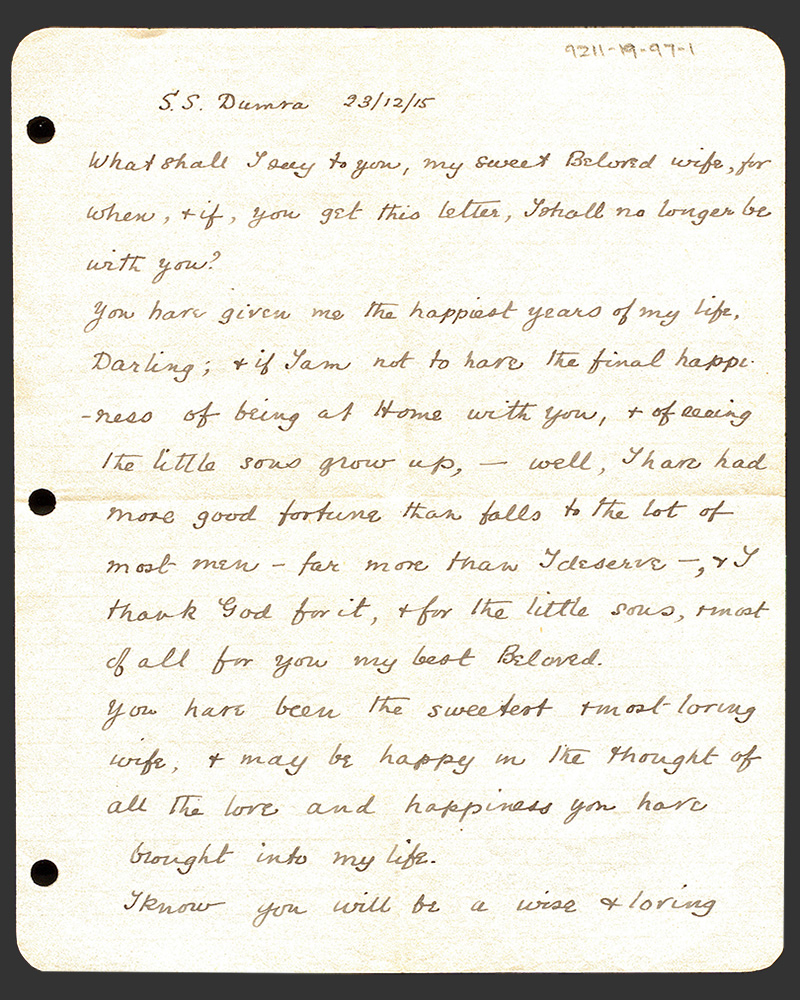 9211-19-97-1
S.S. Dumra 23/12/15
What shall I say to you, my sweet Beloved wife, for
when, & if, you get this letter, I shall no longer be
with you?
You have given me the happiest years of my life,
Darling; & if I am not to have the final happi-
-ness of being at Home with you, & of seeing
the little sons grow up, — well, I have had
more good fortune than falls to the lot of
most men – far more than I deserve –, & I
thank God for it, & for the little sons, & most
of all for you my best Beloved.
You have been the sweetest & most loving
wife, & may be happy in the thought of
all the love and happiness you have
brought into my life.
I know you will be a wise & loving